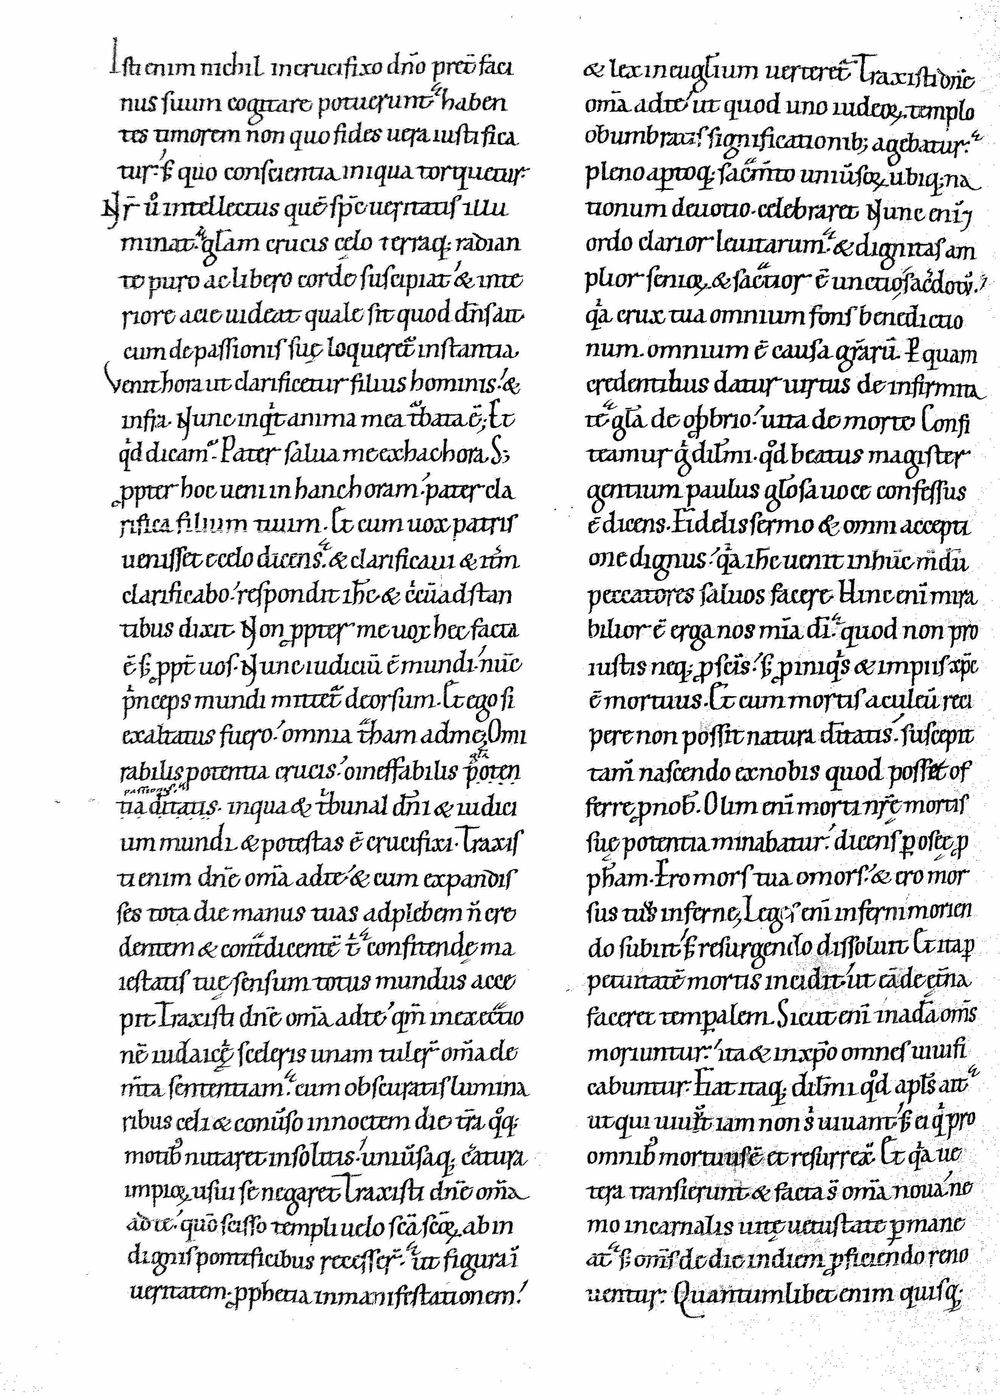 Isti enim nichil in crucifixo dño pret̃ faci
nus suum cogitare potuerunt haben
tes timorem non quo fides uera iustifica
tur· s; quo conscientia iniqua torquetur·
Nr̃ ů intellectus quẽ sp̃c ueritatis illu
minat· gl̃am crucis celo terraq; radian
te puro ac libero corde suscipiat· & inte
riore acie uideat quale sit quod dñs ait
cum de passionis suę loqueret̃ instantia
Venit hora ut clarificetur filius hominis· &
infra· Nunc inqͥt anima mea tͣbata ẽ; Et
qͥd dicam· Pater salua me ex hac hora S;
ꝓpter hoc ueni in hanc horam· pater cla
rifica filium tuum· Et cum uox patris
uenisset e celo dicens· & clarificaui & itm̃
clarificabo· respondit ih̃c & cͥcũadstan
tibus dixit Non ꝓpter me uox hec facta
ẽ s; ꝓpt̃ uos· Nunc iudiciũ ẽ mundi· nũc
pͥnceps mundi mittet̃ deorsum· Et ego si
exaltatus fuero· omnia tͣham ad me; O mi
rabilis potentia crucis· o ineffabilis poten
tia diitatis· passionis· in qua & tͥbunal dñi & iudici
um mundi & potestas ẽ crucifixi· Traxis
ti enim dñe om̃a ad te· & cum expandis
ses tota die manus tuas ad plebem ñ cre
dentem & contͣdicentẽ tͥ confitendę ma
iestatis tuę sensum totus mundus acce
pit Traxisti dñe om̃a ad te· qm̃ in execͣtio
nẽ iudaicę sceleris unam tuler̃ om̃a ele
m̃ta sententiam· cum obscuratis lumina
ribus celi & conũso in noctem die tr̃a qͦq;
motib; nutaret insolitis· uniũsaq; cͤatura
impioꝝ usui se negaret Traxisti dñe om̃a
ad te· qm̃ scisso templi uelo sc̃a sc̃oꝝ ab in
dignis pontificibus recesser̃· ut figura ĩ
ueritatem· ꝓphetia in manifestationem·
& lex in euglĩum uerteret̃ Traxisti dñe
om̃a ad te· ut quod uno iudeę templo
obumbratis significationib; agebatur·
pleno aptoq; sac̃m̃to uniũsoꝝ ubiq; na
tionum deuotio· celebraret Nunc enĩ
ordo clarior leuitarum· & dignitas am
plior senioꝝ & sacͣtior ẽ unctio sac̃dotũ·
qͥa crux tua omnium fons benedictio
num· omnium ẽ causa gr̃arũ· P quam
credentibus datur uirtus de infirmita
te· gl̃a de opbrio· uita de morte Confi
teamur g̊ dil̃mi· qͦd beatus magister
gentium paulus gl̃osa uoce confessus
ẽ dicens· Fidelis sermo & omni accepti
one dignus· qͥa ih̃c uenit in hũc m̃dũ
peccatores saluos facere Hinc enĩ mira
bilior ẽ erga nos mĩa dĩ· quod non pro
iustis neq; ꝓ scĩs· s; ꝓ iniqͥs & impiis xp̃c
ẽ mortuus· Et cum mortis aculeũ reci
pere non possit natura diitatis· suscepit
tam̃ nascendo ex nobis quod posset of
ferre ꝓ nob· Olim enĩ morti nr̃ę mortis
suę potentia minabatur· dicens p osee ꝓ
ph̃am· Ero mors tua o mors· & ero mor
sus tuus inferne; Leges enĩ inferni morien
do subiit s; resurgendo dissoluit Et ita ꝓ
petuitatẽ mortis incidit· ut eã de et̃na
faceret temp̱alem· Sicut enĩ in adã om̃s
moriuntur· ita & in xp̃o omnes uiuifi
cabuntur· Fiat itaq; dil̃mi qͦd apl̃s ait
ut qui uiuũt iam non sͥ uiuant· s; ei qͥ pro
omnib; mortuus ẽ et resurrex̃· Et qͥa ue
tera transierunt & facta s̃ om̃a noua· ne
mo in carnalis uitę uetustate p mane
at· s; om̃s de die in diem ꝓficiendo reno
uentur· Quantumlibet enim quisq;